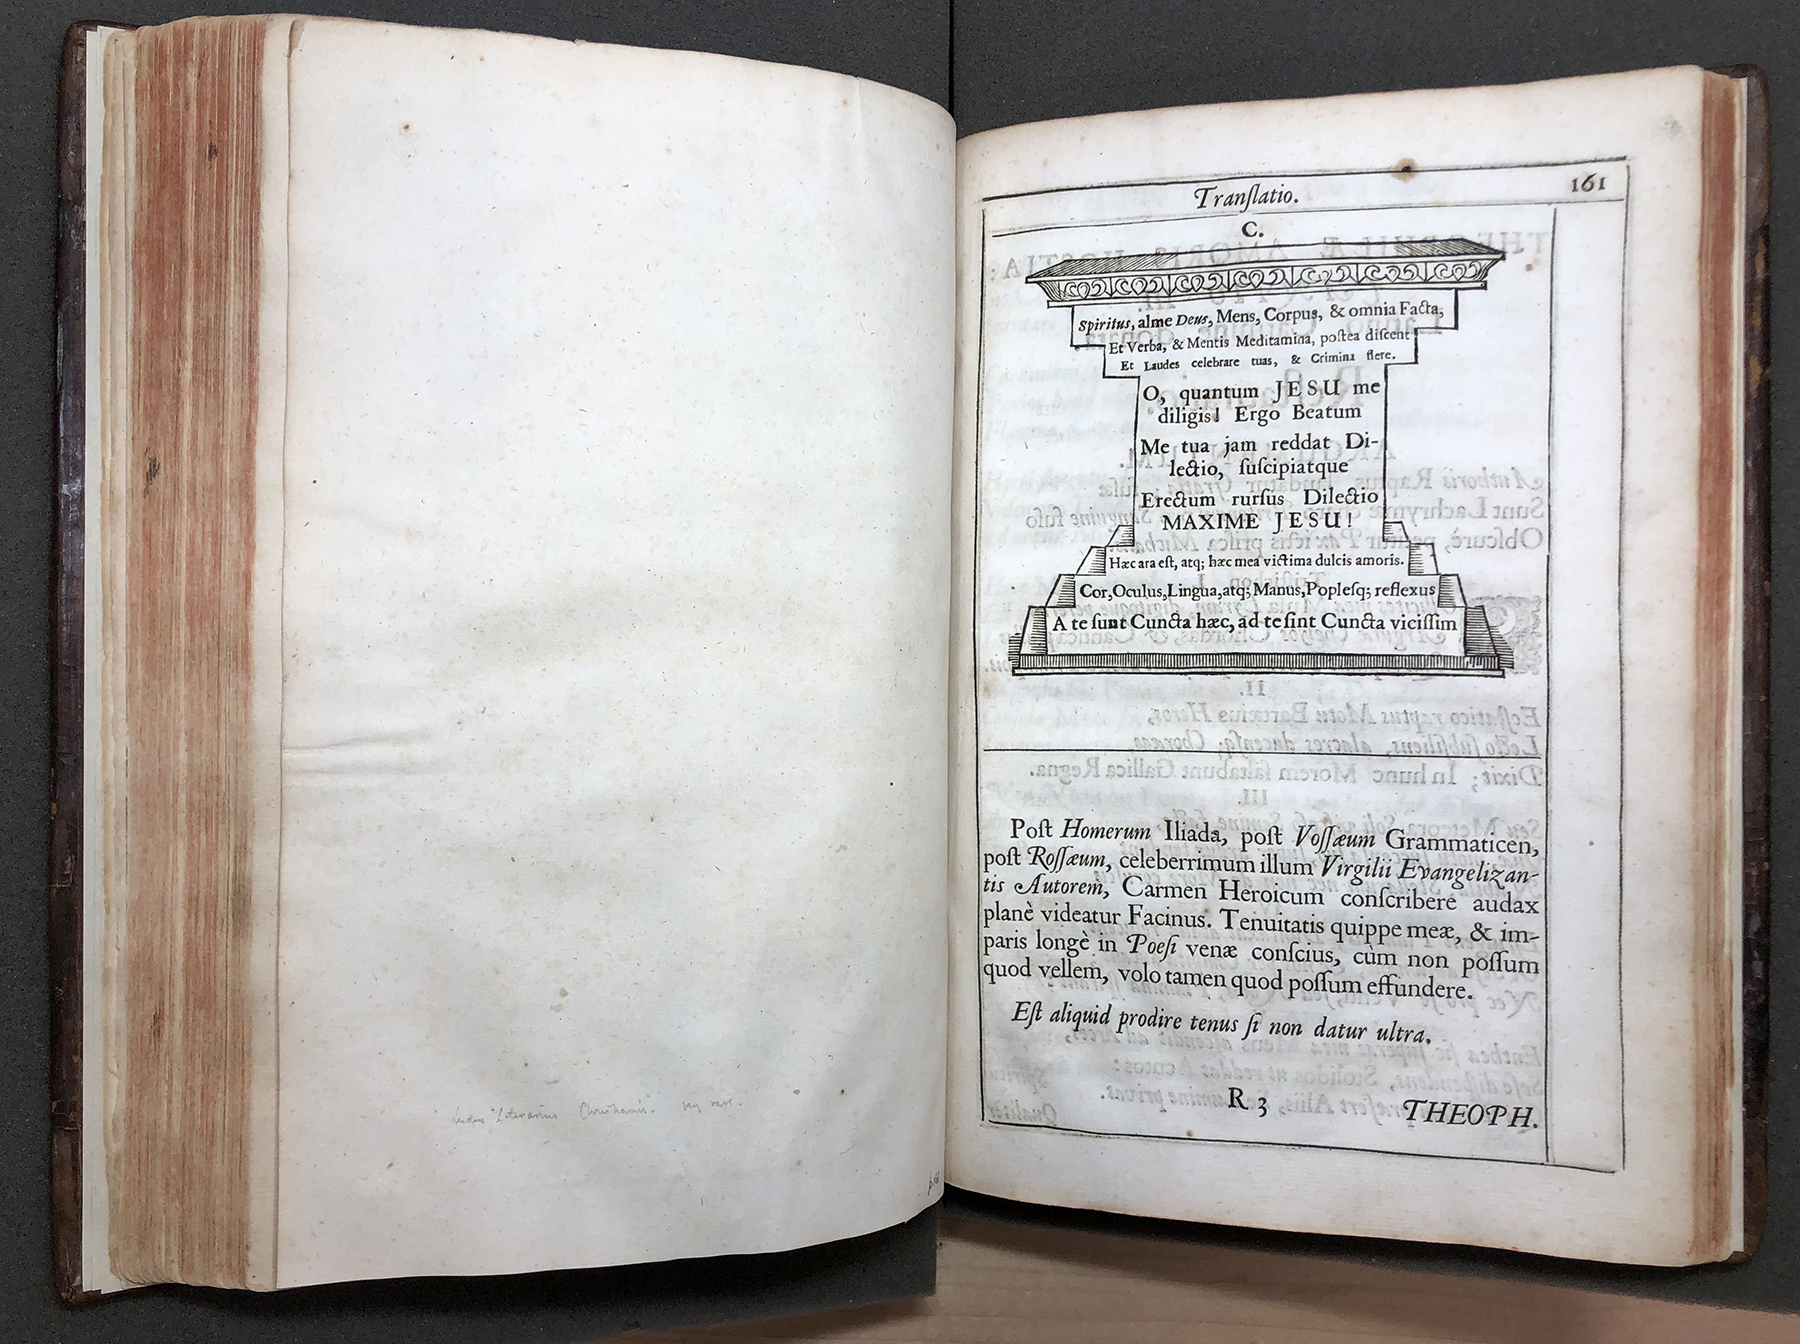 "Literarius Christianus". very rare.
Tranſlatio.
161
C.
Spiritus, alme Deus, Mens, Corpus, & omnia Facta,
Et Verba, & Mentis Meditamina, poſtea diſcent
Et Laudes celebrare tuas, & Crimina flere.
O, quantum JESU me
diligis! Ergo Beatum
Me tua jam reddat Di-
lectio, ſuſcipiatque
Erectum rurſus Dilectio
MAXIME JESU!
Hæc ara eſt, atq; hæc mea victima dulcis amoris.
Cor, Oculus, Lingua, atq; Manus, Popleſq; reflexus
A te ſunt Cuncta hæc, ad te ſint Cuncta viciſſim
Poſt Homerum Iliada, poſt Voſſæum Grammaticen,
poſt Roſſæum, celeberrimum illum Virgilii Evangelizan-
tis Autorem, Carmen Heroicum conſcribere audax
planè videatur Facinus. Tenuitatis quippe meæ, & im-
paris longè in Poeſi venæ conſcius, cùm non poſſum
quod vellem, volo tamen quod poſſum effundere.
Eſt aliquid prodire tenus ſi non datur ultra.
R 3
THEOPH.